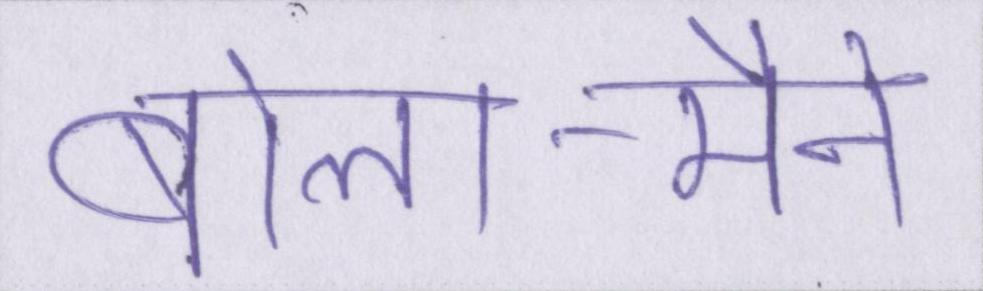 बोला-मैने